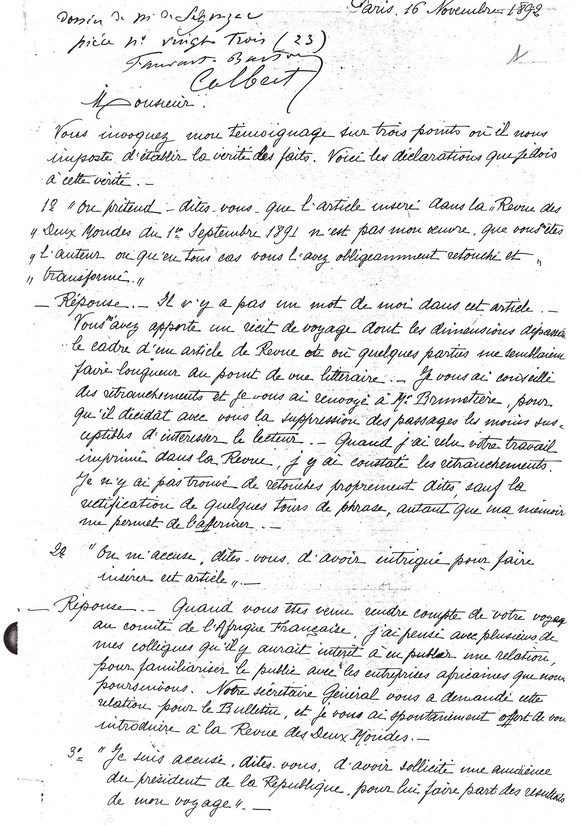 Paris, 16 Novembre 1892
Dossier de Mr de Segonzac
pièce no vingt trois (23)
Colbert
Monsieur.
Vous invoquez mon témoignage sur trois points où il nous
importe d'établir la vérité des faits. Voici les déclarations que je dois
à cette vérité. _
1o " On prétend - dites-vous - que l'article inséré dans la "Revue des
" Deux Mondes du 1er Septembre 1891 n'est pas mon œuvre, que vous êtes
" l'auteur ou qu'en tous cas vous l'avez obligeamment retouché et "
" transformé. "
_ Réponse. _ Il n'y a pas un mot de moi dans cet article. _
Vous m'avez apporté un récit de voyage dont les dimensions dépassaient
le cadre d'un article de Revue et où quelques parties me semblaient
faire longueur au point de vue littéraire. _ Je vous ai conseillé
des retranchements et je vous ai renvoyé à Mr Brunetière, pour
qu'il décidât avec vous la suppression des passages les moins sus-
ceptibles d'intéresser le lecteur. _ Quand j'ai relu votre travail
imprimé dans la Revue, j'y ai constaté les retranchements.
Je n'y ai pas trouvé de retouches proprement dites, sauf la
rectification de quelques tours de phrase, autant que ma mémoire
me permet de l'affirmer. _
2o " On m'accuse, dites-vous, d'avoir intrigué pour faire
insérer cet article ". _
_ Réponse _ Quand vous êtes venu rendre compte de votre voyage
au comité de l'Afrique Française, j'ai pensé avec plusieurs de
mes collègues qu'il y aurait intérêt à en publier une relation,
pour familiariser le public avec les entreprises africaines que nous
poursuivions. Notre secrétaire Général vous a demandé cette
relation pour le Bulletin, et je vous ai spontanément offert de vous
introduire à la Revue des Deux Mondes. _
3o " Je suis accusé, dites-vous, d'avoir sollicité une audience
du président de la République, pour lui faire part des résultats
de mon voyage ". _